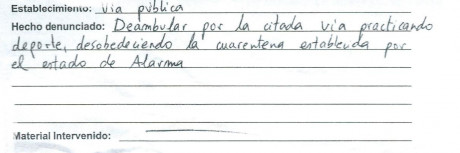 Establecimiento: Via pública
Hecho denunciado: Deambular por la citada via practicando
deporte, desobedeciendo la cuarentena establecida por
el estado de Alarma
Material Intervenido: